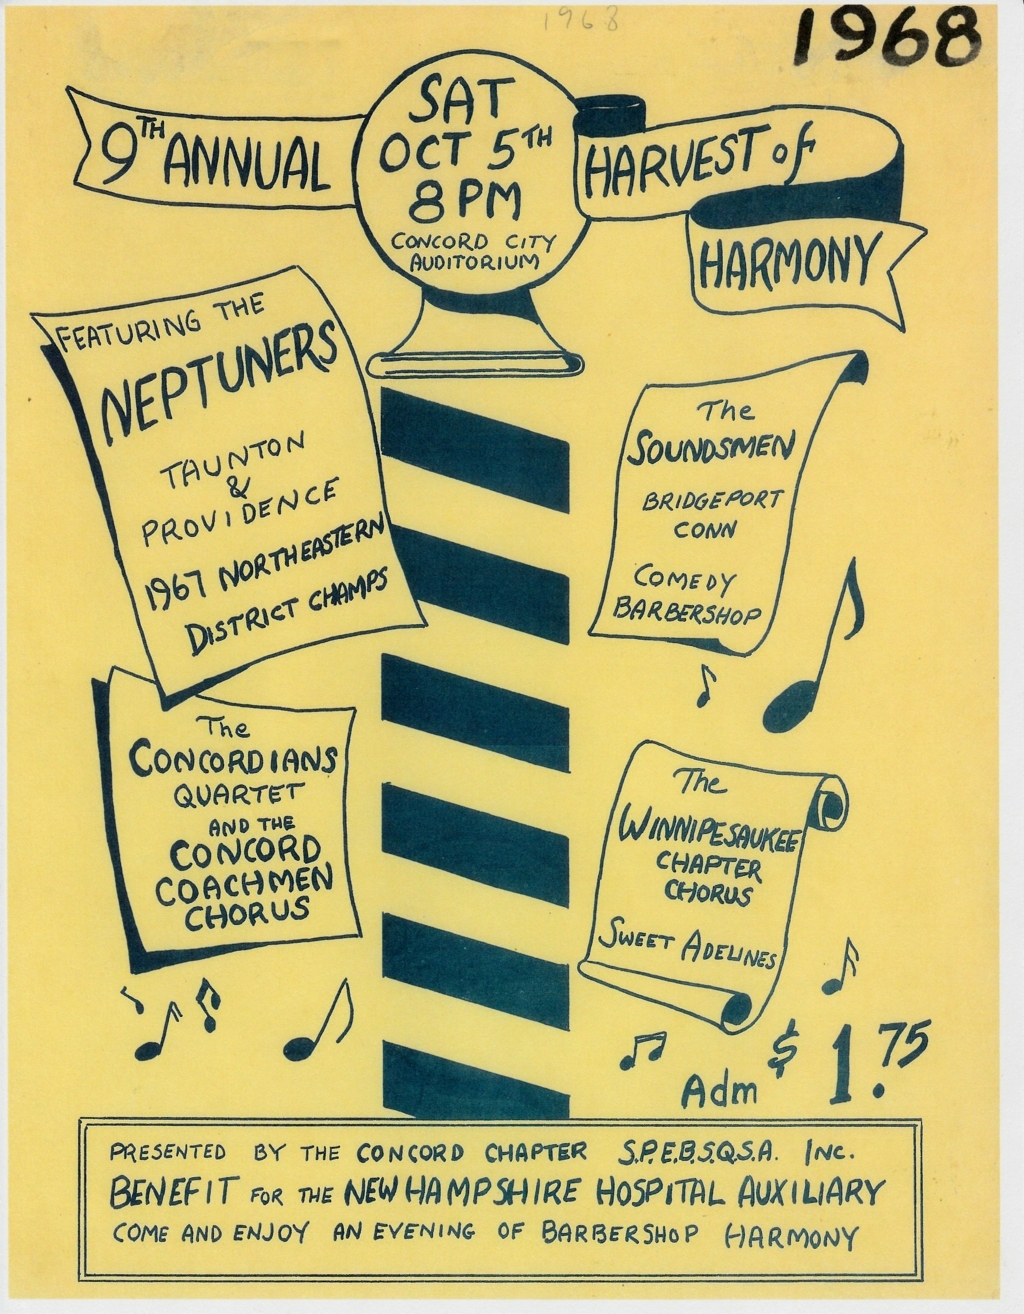 1968
1968
9TH ANNUAL
SAT
OCT 5TH
8 PM
CONCORD CITY
AUDITORIUM
HARVEST of
HARMONY
FEATURING THE
NEPTUNERS
TAUNTON
&
PROVIDENCE
1967 NORTHEASTERN
DISTRICT CHAMPS
The
SOUNDSMEN
BRIDGEPORT
CONN
COMEDY
BARBERSHOP
The
CONCORDIANS
QUARTET
AND THE
CONCORD
COACHMEN
CHORUS
The
WINNIPESAUKEE
CHAPTER
CHORUS
SWEET ADELINES
Adm $1.75
PRESENTED BY THE CONCORD CHAPTER S.P.E.B.S.Q.S.A. INC.
BENEFIT FOR THE NEW HAMPSHIRE HOSPITAL AUXILIARY
COME AND ENJOY AN EVENING OF BARBERSHOP HARMONY